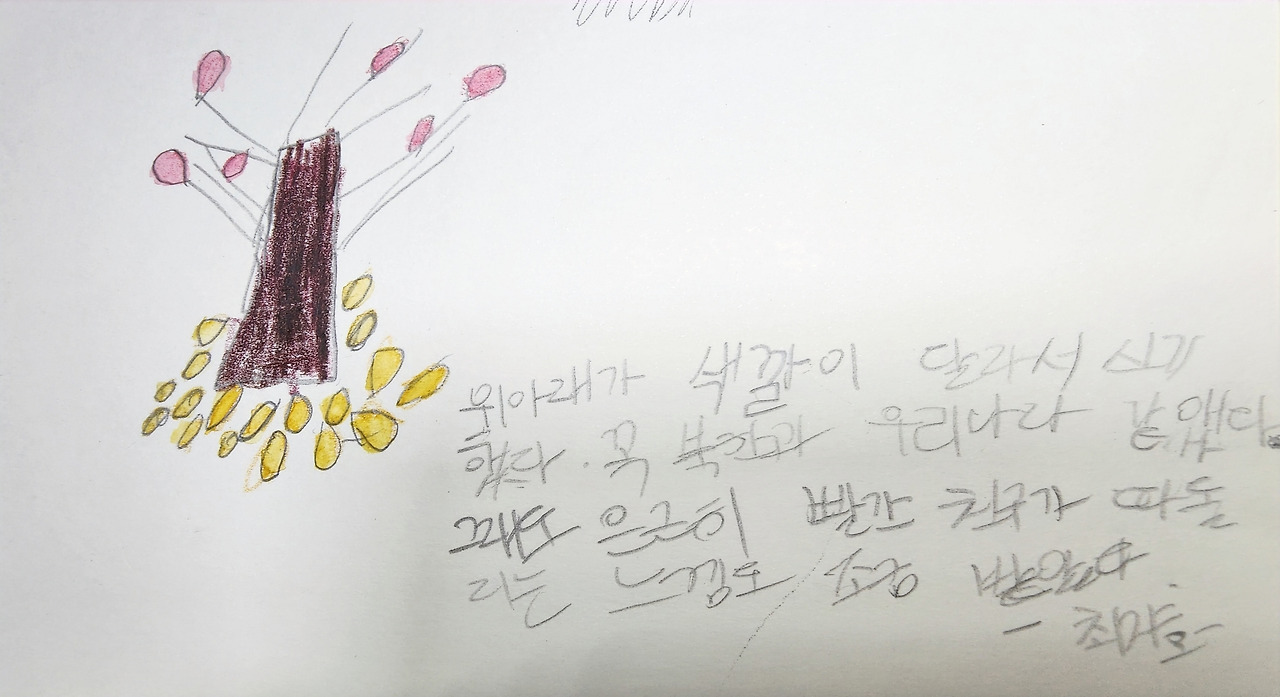 위아래가 색깔이 달라서 신기
했다. 꼭 북한과 우리나라 같앴다.
은근히 빨간 친구가 따돌
리는 느낌도 조금 받았다.